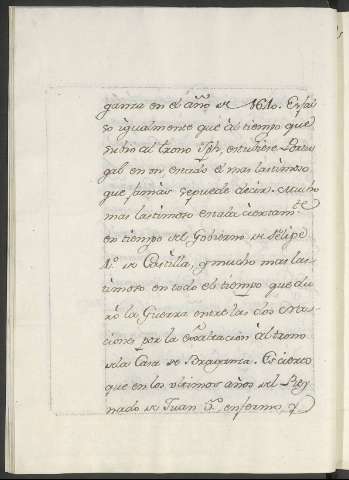 ganza en el año de 1640. Es fal
so igualmente que al tiempo que
subio al trono Jph, estubiese Portu
gal en un estado el mas lastimoso
que jamàs se puede decir. Mucho
mas lastimoso estaba ciertam.te
en tiempo del Gobierno de Felipe
4.º de Castilla, y mucho mas las
timoso en todo el tiempo que du
rò la Guerra entre las dos Na
ciones por la exaltacion àl trono
dela Casa de Braganza. Es cierto
que en los ultimos años del Rey
nado de Juan 5.º, enfermo, y